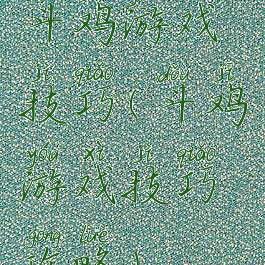 斗鸡游戏
jì qiǎo dòu jī
技巧(斗鸡
yóu xì jì qiǎo
游戏技巧
gōng lüè
攻略)